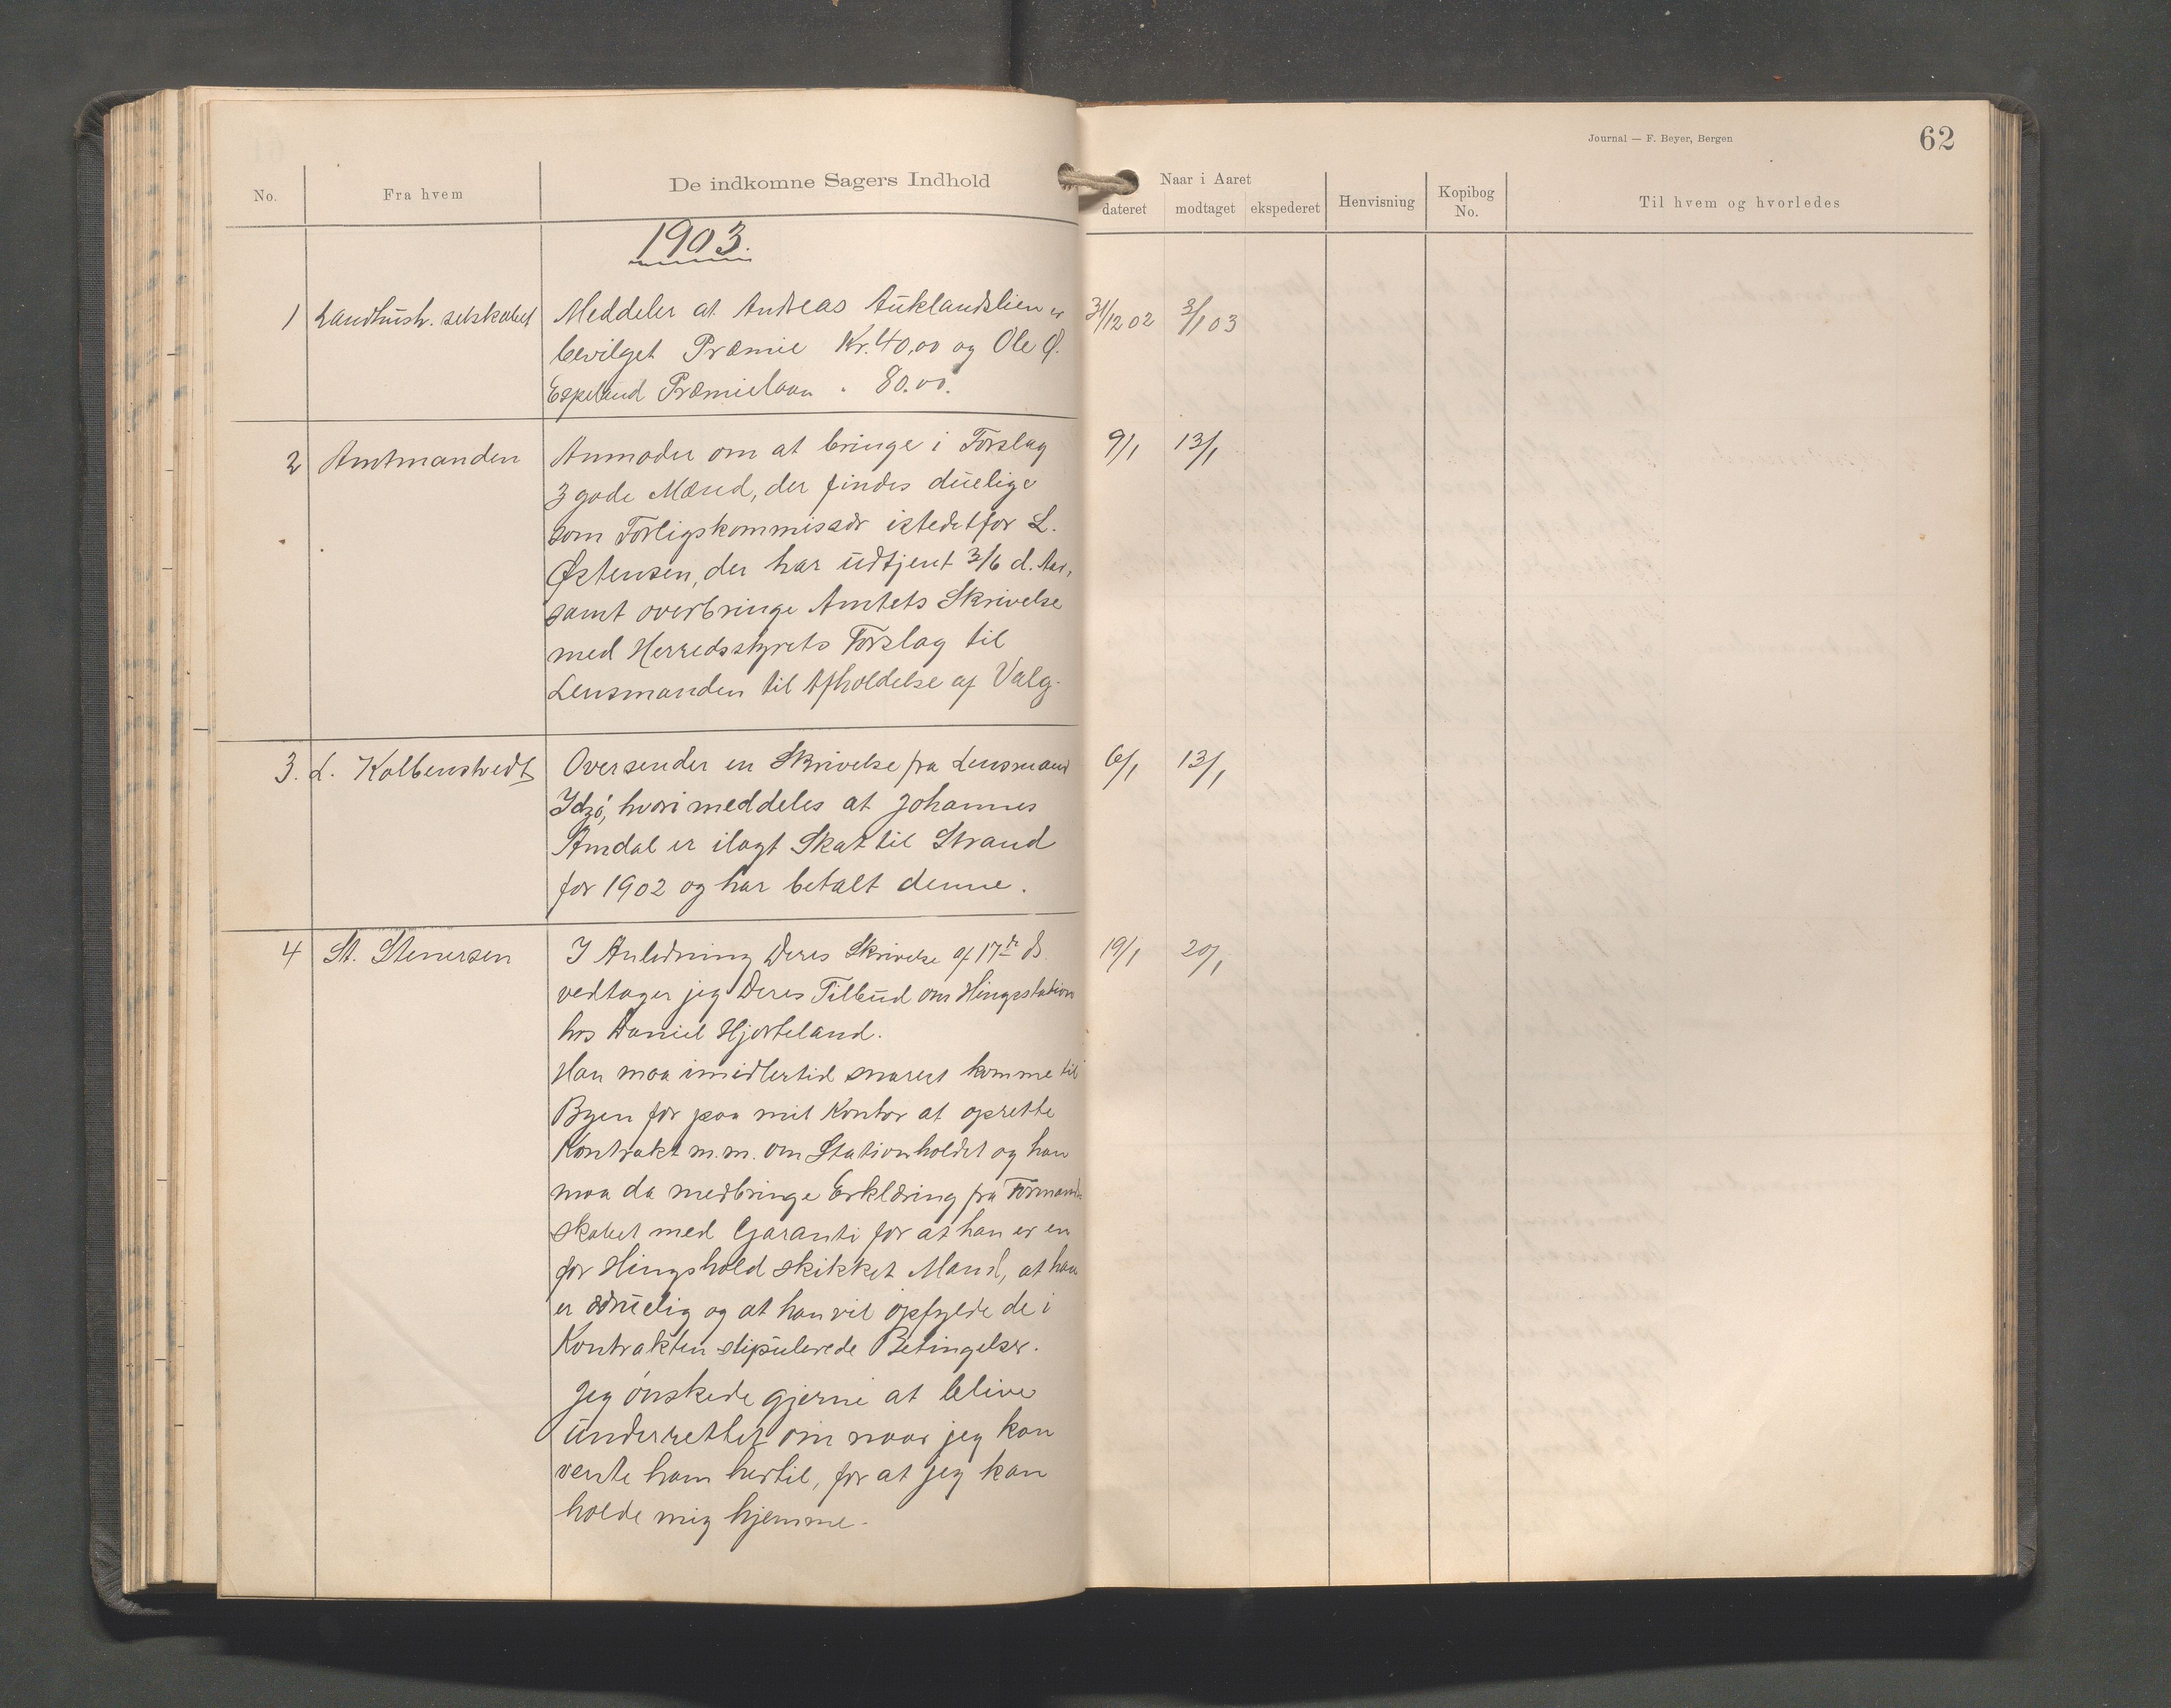 Journal — F. Beyer, Bergen
62
No. Fra hvem De indkomne Sagers Indhold Naar i Aaret Henvisning Kopibog No. Til hvem og hvorledes
dateret modtaget ekspederet
1903.
1 Landhush. selskabet Meddeler at Andreas Auklandslien er 31/12 02 3/1 03
bevilget Præmie Kr. 40,00 og Ole Ø.
Espeland Præmielaan " 80.00.
2 Amtmanden Anmoder om at bringe i Forslag 9/1 13/1
3 gode Mænd, der findes duelige
som Forligskommissær istedetfor L.
Østensen, der har udtjent 3/6 d. Aar,
samt overbringe Amtets Skrivelse
med Herredsstyrets Forslag til
Lensmanden til Afholdelse af Valg.
3. L. Kolbenstvedt Oversender en Skrivelse fra Lensmand 6/1 13/1
Idsø, hvori meddeles at Johannes
Amdal er ilagt Skat til Strand
for 1902 og har betalt denne.
4 St. Stenersen I Anledning Deres Skrivelse af 17de ds. 19/1 20/1
vedtager jeg Deres Tilbud om Hingstation
hos Daniel Hjorteland.
Han maa imidlertid snarest komme til
Byen for paa mit Kontor at oprette
Kontrakt m.m. om Stationholdet og han
maa da medbringe Erklæring fra Formand-
skabet med Garanti for at han er en
for Hingshold skikket Mand, at han
er ædruelig og at han vil opfylde de i
Kontrakten stipulerede Betingelser.
Jeg ønskede gjerne at blive
underrettet om naar jeg kan
vente ham hertil, for at jeg kan
holde mig hjemme.